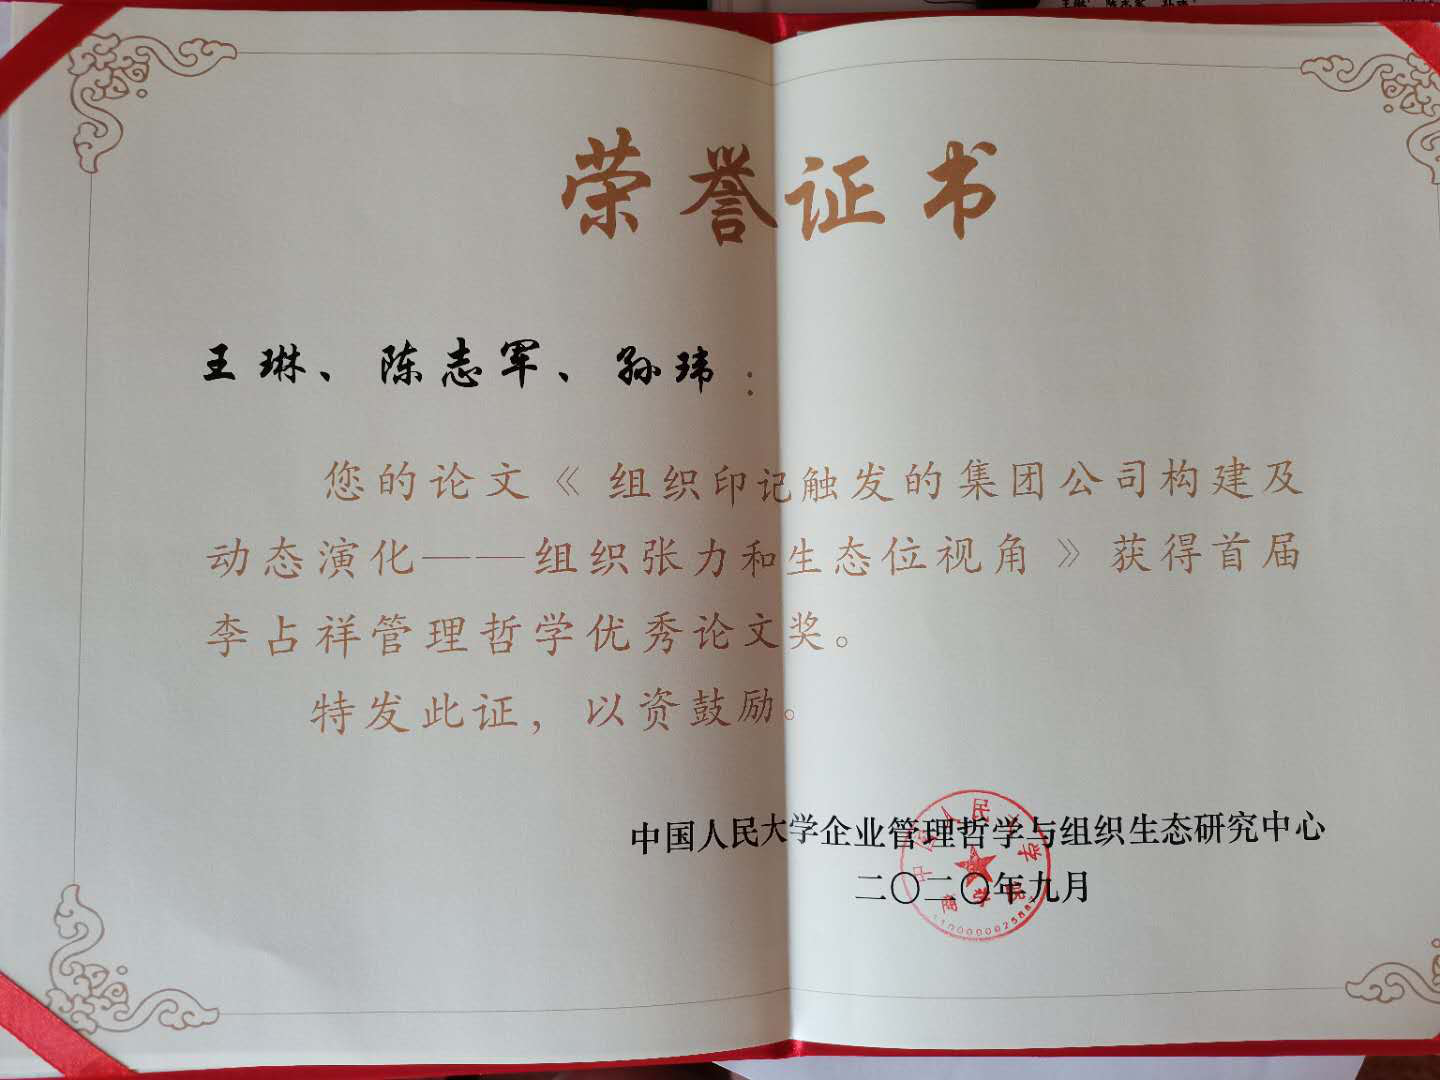 荣誉证书
王琳、陈志军、孙玮：
您的论文《组织印记触发的集团公司构建及
动态演化——组织张力和生态位视角》获得首届
李占祥管理哲学优秀论文奖。
特发此证，以资鼓励。
中国人民大学企业管理哲学与组织生态研究中心
二〇二〇年九月
中国人民大学
商学院